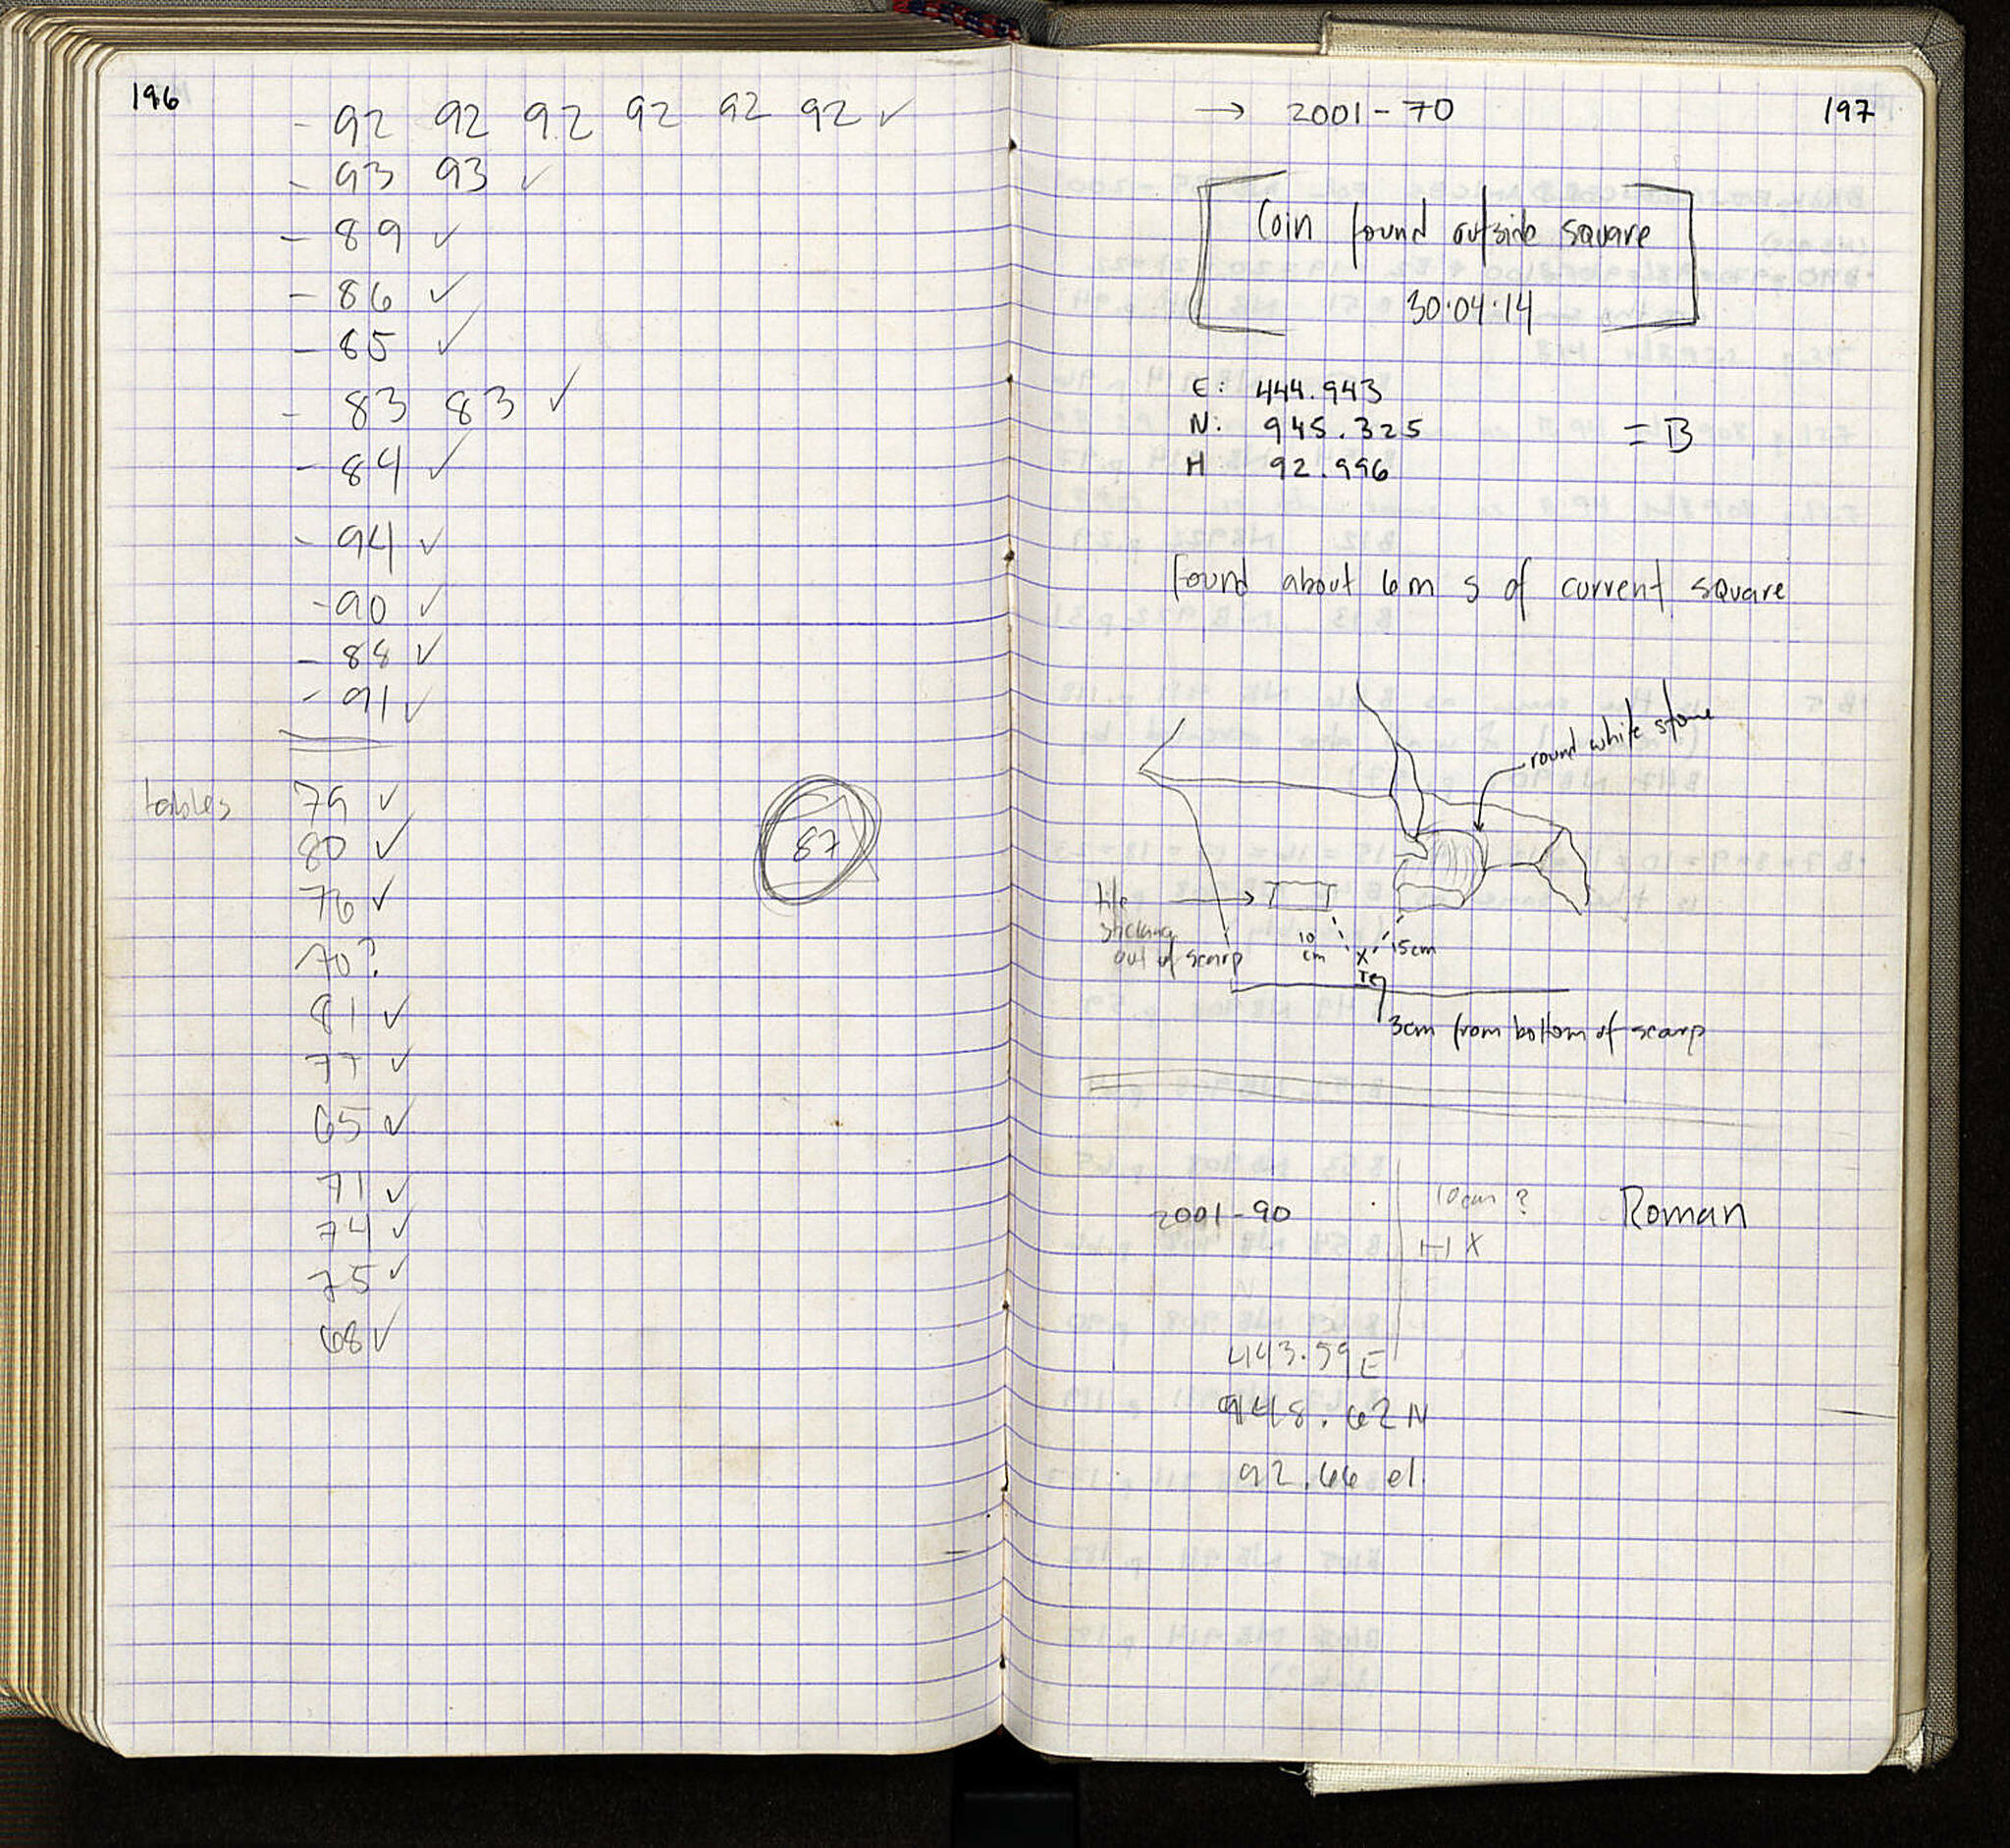 196
- 92 92 92 92 92 92 ✓
- 93 93 ✓
- 89 ✓
- 86 ✓
- 85 ✓
- 83 83 ✓
- 84 ✓
- 94 ✓
- 90 ✓
- 88 ✓
- 91 ✓
tables 79 ✓
80 ✓
76 ✓
70?
81 ✓
77 ✓
65 ✓
71 ✓
74 ✓
75 ✓
68 ✓
87
→ 2001-70
197
Coin found outside square
30.04.14
E: 444.943
N: 945.325 = B
H 92.996
Found about 6m S of current square
round white stone
tile
sticking
out of scarp
10
cm
15cm
X
3cm from bottom of scarp
2001-90
10cm ?
X
Roman
443.59 E
948.62 N
92.66 el.